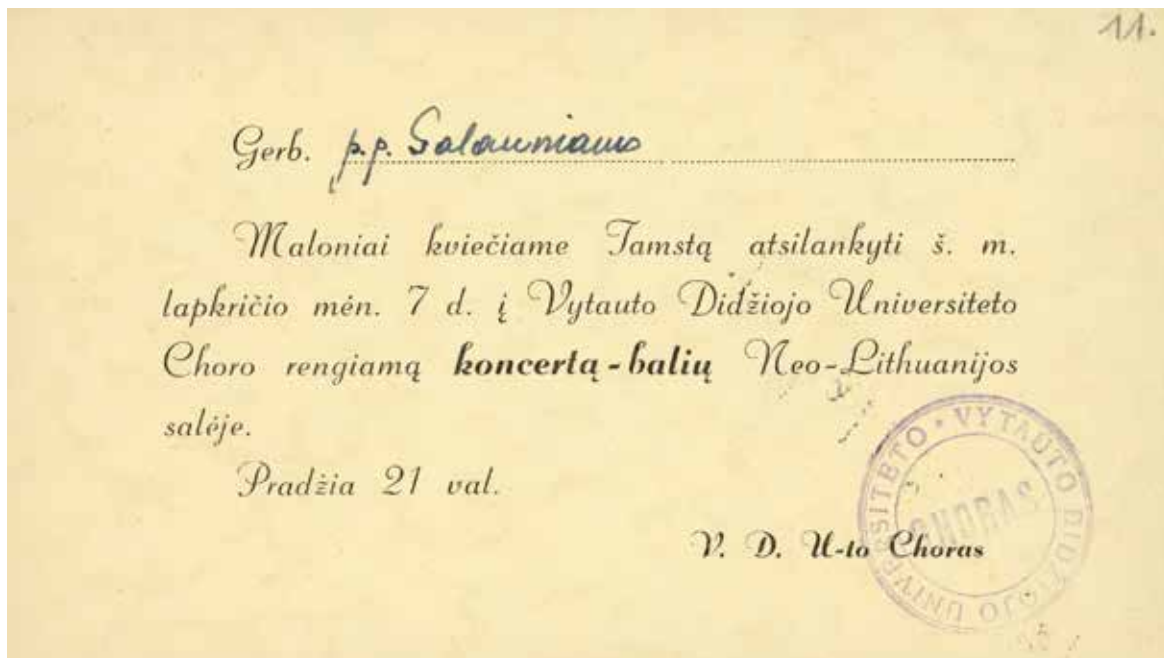 11.
Gerb. p.p. Galauniams
Maloniai kviečiame Tamstą atsilankyti š. m.
lapkričio mėn. 7 d. į Vytauto Didžiojo Universiteto
Choro rengiamą koncertą-balių Neo-Lithuanijos
salėje.
Pradžia 21 val.
V. D. U-to Choras
VYTAUTO DIDŽIOJO UNIVERSITETO
CHORAS